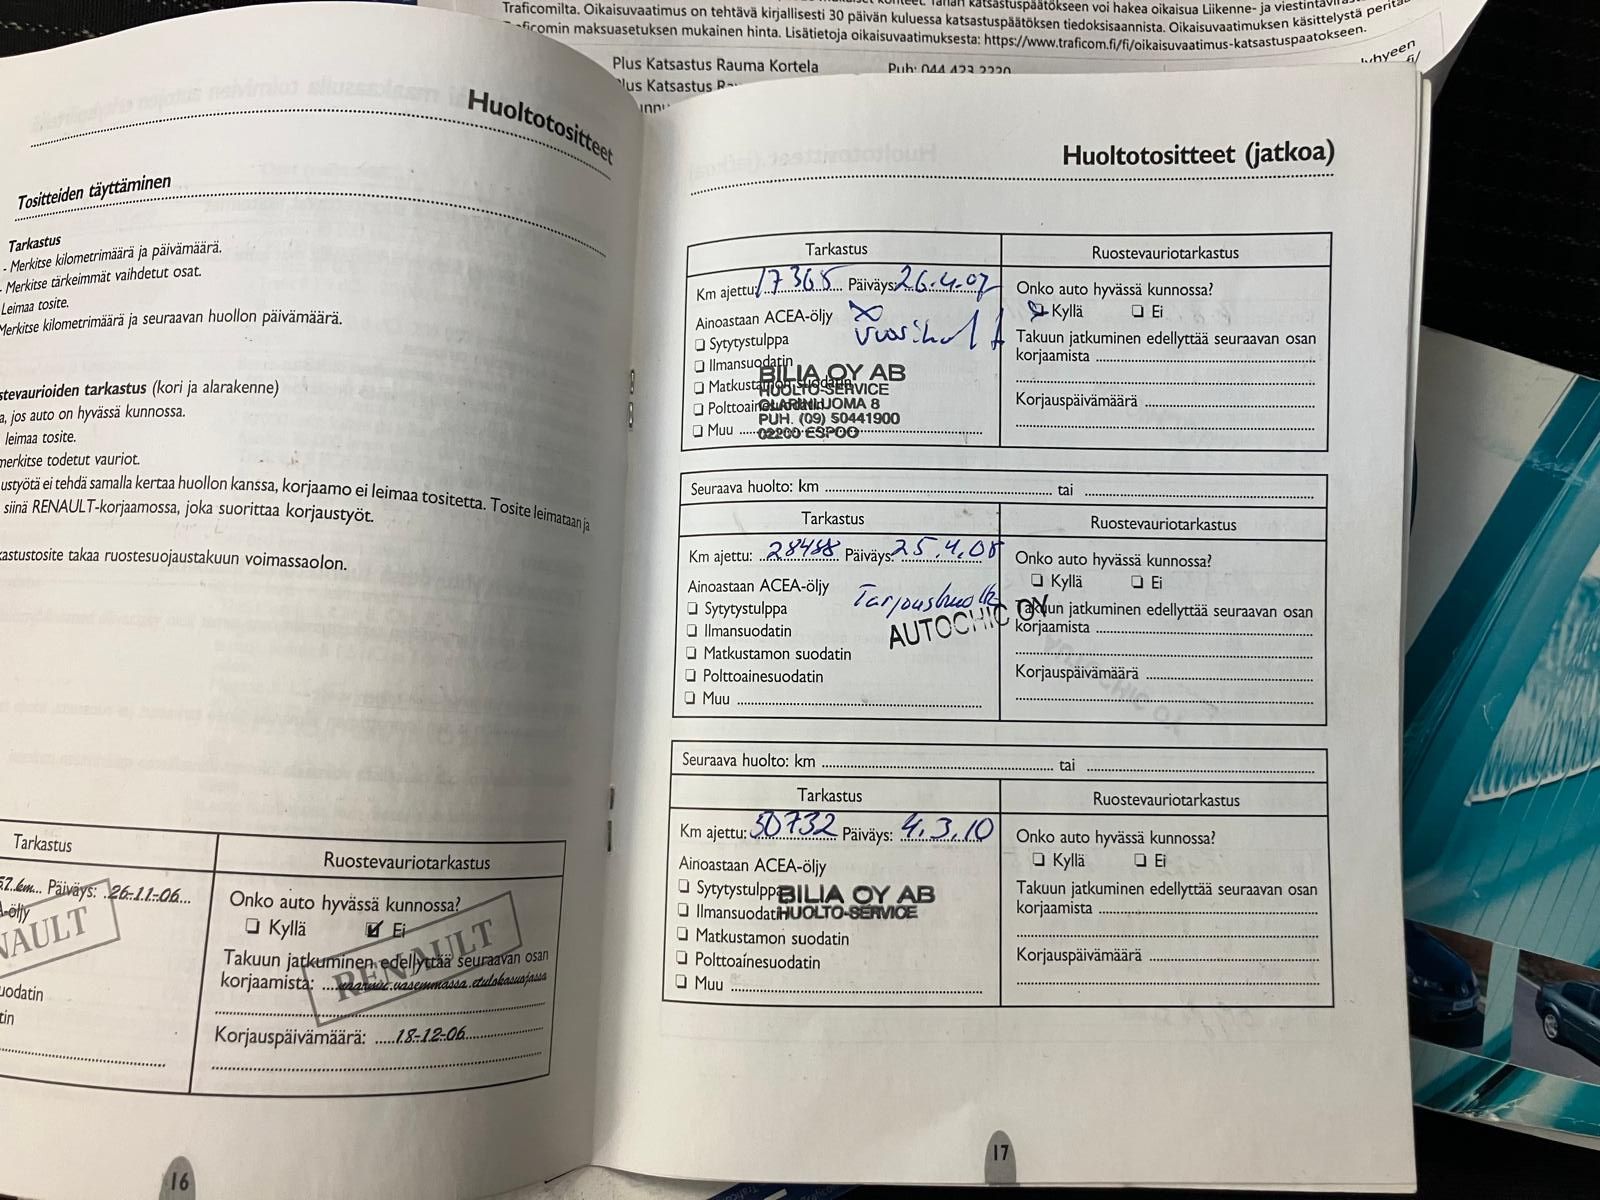 Traficomilta. Oikaisuvaatimus on tehtävä kirjallisesti 30 päivän kuluessa katsastuspäätöksen tiedoksisaannista. Oikaisuvaatimuksen käsittelystä
maksuasetuksen mukainen hinta. Lisätietoja oikaisuvaatimuksesta: https://www.traficom.fi/fi/oikaisuvaatimus-katsastuspaatokseen.
Plus Katsastus Rauma Kortela
Puh: 044 423 2220
Huoltotositteet
Tositteiden täyttäminen
Tarkastus
- Merkitse kilometrimäärä ja päivämäärä.
- Merkitse tärkeimmät vaihdetut osat.
Leimaa tosite.
Merkitse kilometrimäärä ja seuraavan huollon päivämäärä.
tarkastus (kori ja alarakenne)
jos auto on hyvässä kunnossa.
leimaa tosite.
merkitse todetut vauriot.
ei tehdä samalla kertaa huollon kanssa, korjaamo ei leimaa tositetta. Tosite leimataan ja
siinä RENAULT-korjaamossa, joka suorittaa korjaustyöt.
takaa ruostesuojaustakuun voimassaolon.
Tarkastus
Ruostevauriotarkastus
km... Päiväys: 26-11-06
Onko auto hyvässä kunnossa?
Kyllä Ei
RENAULT
Takuun jatkuminen edellyttää seuraavan osan
korjaamista: vasemmassa etulokasuojassa
Korjauspäivämäärä: 18-12-06
16
Huoltotositteet (jatkoa)
Tarkastus
Ruostevauriotarkastus
Km ajettu: 17365 Päiväys: 26.4.07
Onko auto hyvässä kunnossa?
Kyllä Ei
Ainoastaan ACEA-öljy
Sytytystulppa
Takuun jatkuminen edellyttää seuraavan osan
korjaamista
Ilmansuodatin
Muu
Korjauspäivämäärä
BILIA OY AB
HUOLTO-SERVICE
OLARINLUOMA 8
PUH. (09) 50441900
02200 ESPOO
Seuraava huolto: km tai
Tarkastus
Ruostevauriotarkastus
Km ajettu: 28488 Päiväys: 25.4.08
Onko auto hyvässä kunnossa?
Kyllä Ei
Ainoastaan ACEA-öljy
AUTOCHIC OY
Sytytystulppa
Takuun jatkuminen edellyttää seuraavan osan
korjaamista
Ilmansuodatin
Matkustamon suodatin
Polttoainesuodatin
Korjauspäivämäärä
Muu
Seuraava huolto: km tai
Tarkastus
Ruostevauriotarkastus
Km ajettu: 30732 Päiväys: 4.3.10
Onko auto hyvässä kunnossa?
Kyllä Ei
Ainoastaan ACEA-öljy
Sytytystulppa
BILIA OY AB
Takuun jatkuminen edellyttää seuraavan osan
korjaamista
Ilmansuodatin
HUOLTO-SERVICE
Matkustamon suodatin
Polttoainesuodatin
Korjauspäivämäärä
Muu
17